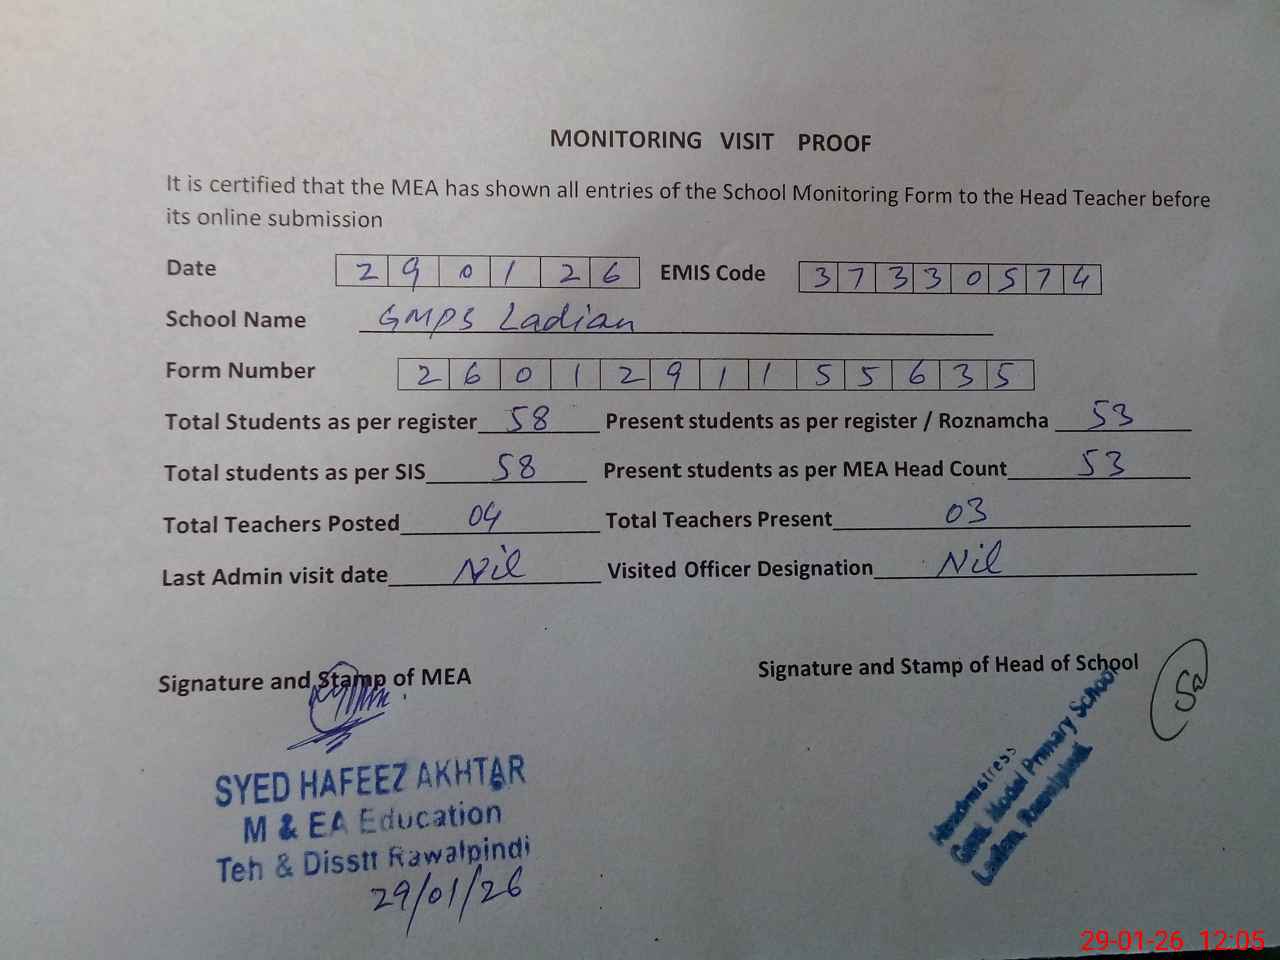 MONITORING VISIT PROOF
It is certified that the MEA has shown all entries of the School Monitoring Form to the Head Teacher before
its online submission
Date 2 9 0 1 2 6 EMIS Code 3 7 3 3 0 5 7 4
School Name GMPS Ladian
Form Number 2 6 0 1 2 9 1 1 5 5 6 3 5
Total Students as per register 58 Present students as per register / Roznamcha 53
Total students as per SIS 58 Present students as per MEA Head Count 53
Total Teachers Posted 04 Total Teachers Present 03
Last Admin visit date Nil Visited Officer Designation Nil
Signature and Stamp of MEA Signature and Stamp of Head of School
SYED HAFEEZ AKHTAR
M & EA Education
Teh & Disstt Rawalpindi
29/01/26
Headmistress
Govt. Model Primary School
Ladian, Rawalpindi
29-01-26 12:05